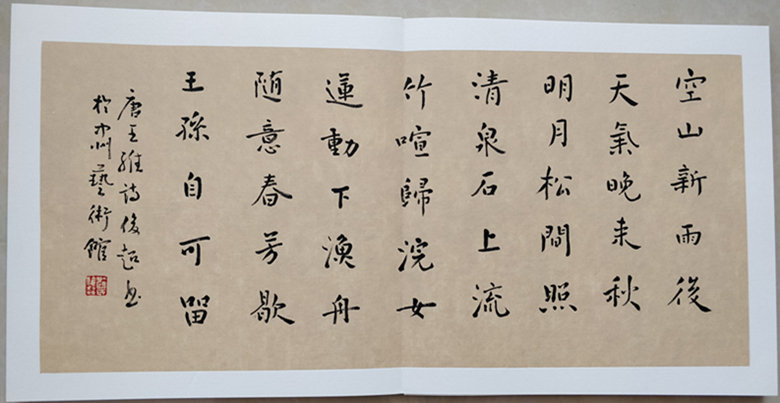 空山新雨後
天氣晚来秋
明月松間照
清泉石上流
竹喧歸浣女
蓮動下漁舟
随意春芳歇
王孫自可留
唐王維詩俊超书
於中州藝術館